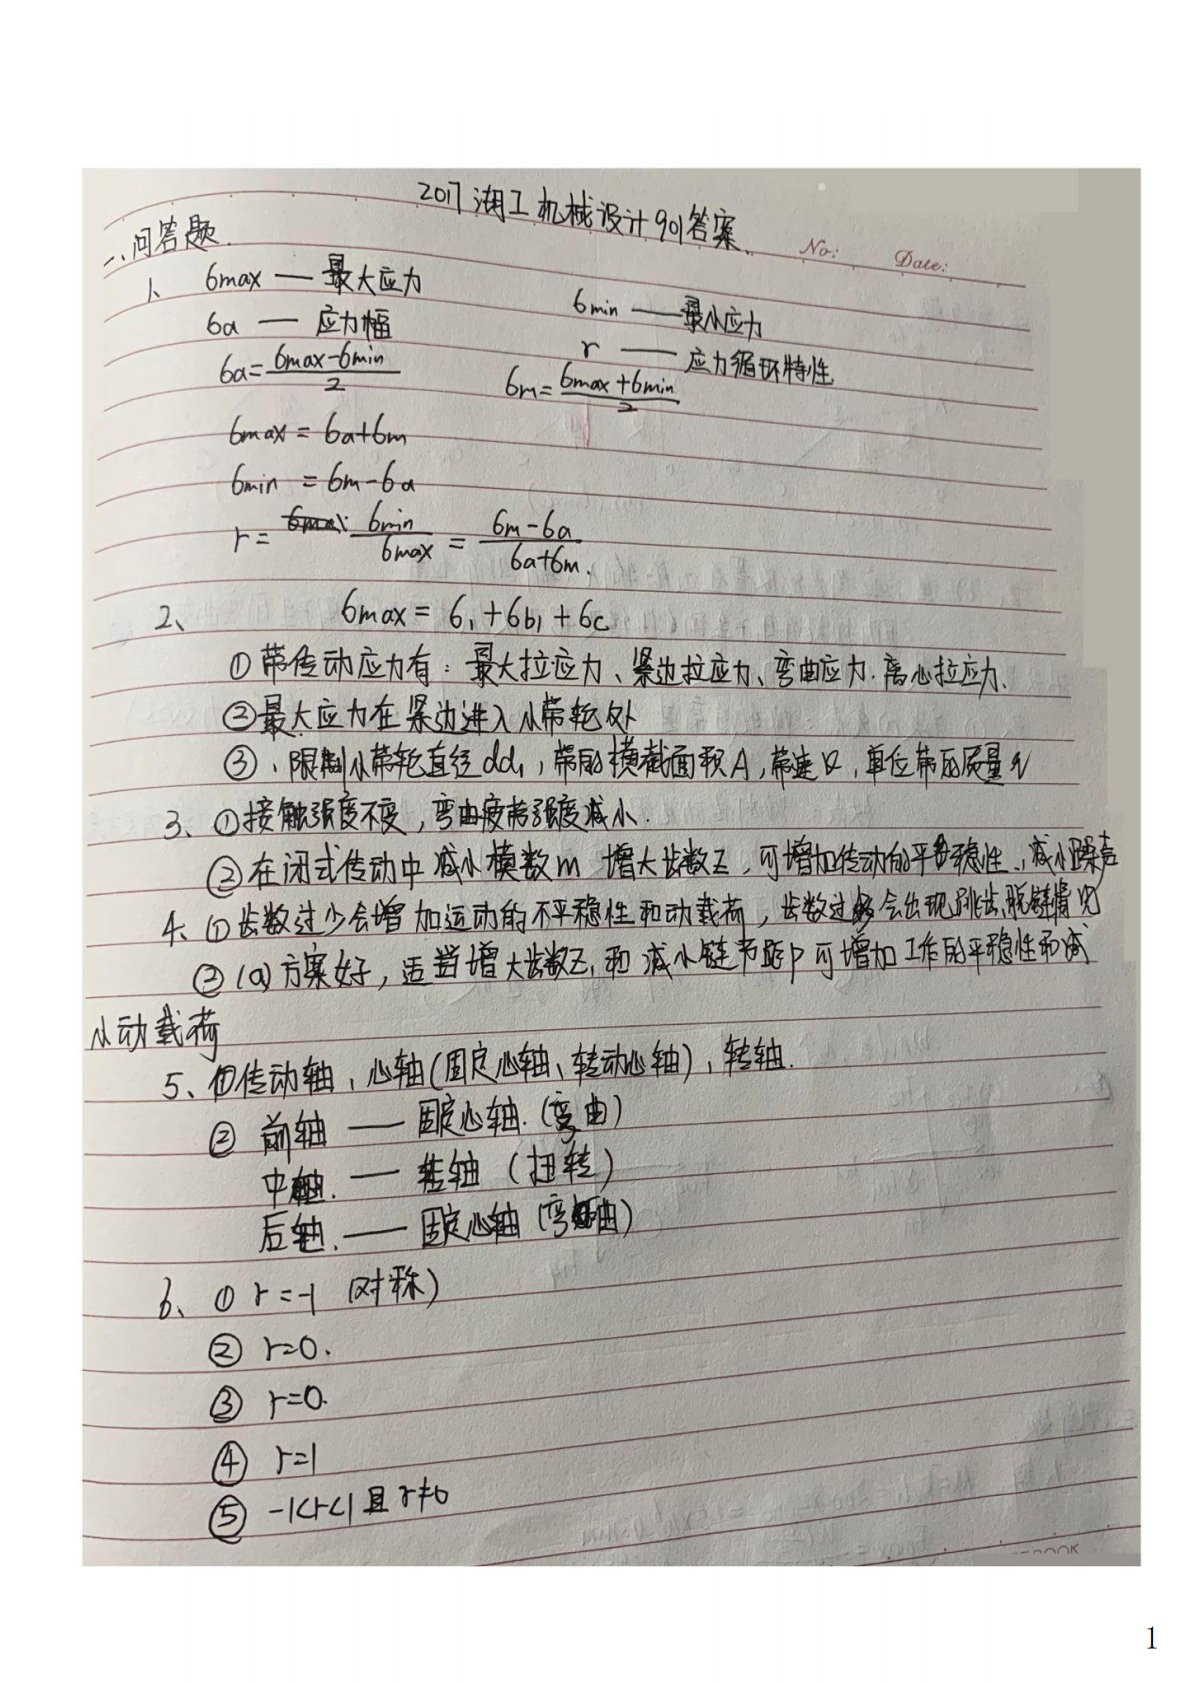 2017湖工机械设计901答案
No: Date:
一、问答题
1、 6max — 最大应力 6min — 最小应力
6a — 应力幅 r — 应力循环特性
6a = (6max-6min)/2 6m = (6max+6min)/2
6max = 6a+6m
6min = 6m-6a
r = 6min/6max = (6m-6a)/(6a+6m)
2、 6max = 6₁+6b₁+6c
①带传动应力有：最大拉应力、紧边拉应力、弯曲应力、离心拉应力.
②最大应力在紧边进入小带轮处
③、限制小带轮直径dd₁，带的横截面积A，带速v，单位带的质量q
3、①接触强度不变，弯曲疲劳强度减小.
②在闭式传动中减小模数m 增大齿数Z，可增加传动的平稳性、减小噪声
4、①齿数过少会增加运动的不平稳性和动载荷，齿数过多会出现跳齿、脱链情况
②(a)方案好，适当增大齿数Z₁和减小链节距P可增加工作的平稳性和减
小动载荷
5、①传动轴、心轴(固定心轴、转动心轴)、转轴.
② 前轴 — 固定心轴.(弯曲)
中轴. — 转轴 (扭转)
后轴. — 固定心轴 (弯曲)
6、① r=-1 (对称)
② r=0.
③ r=0.
④ r=1
⑤ -1<r<1 且 r≠0
1